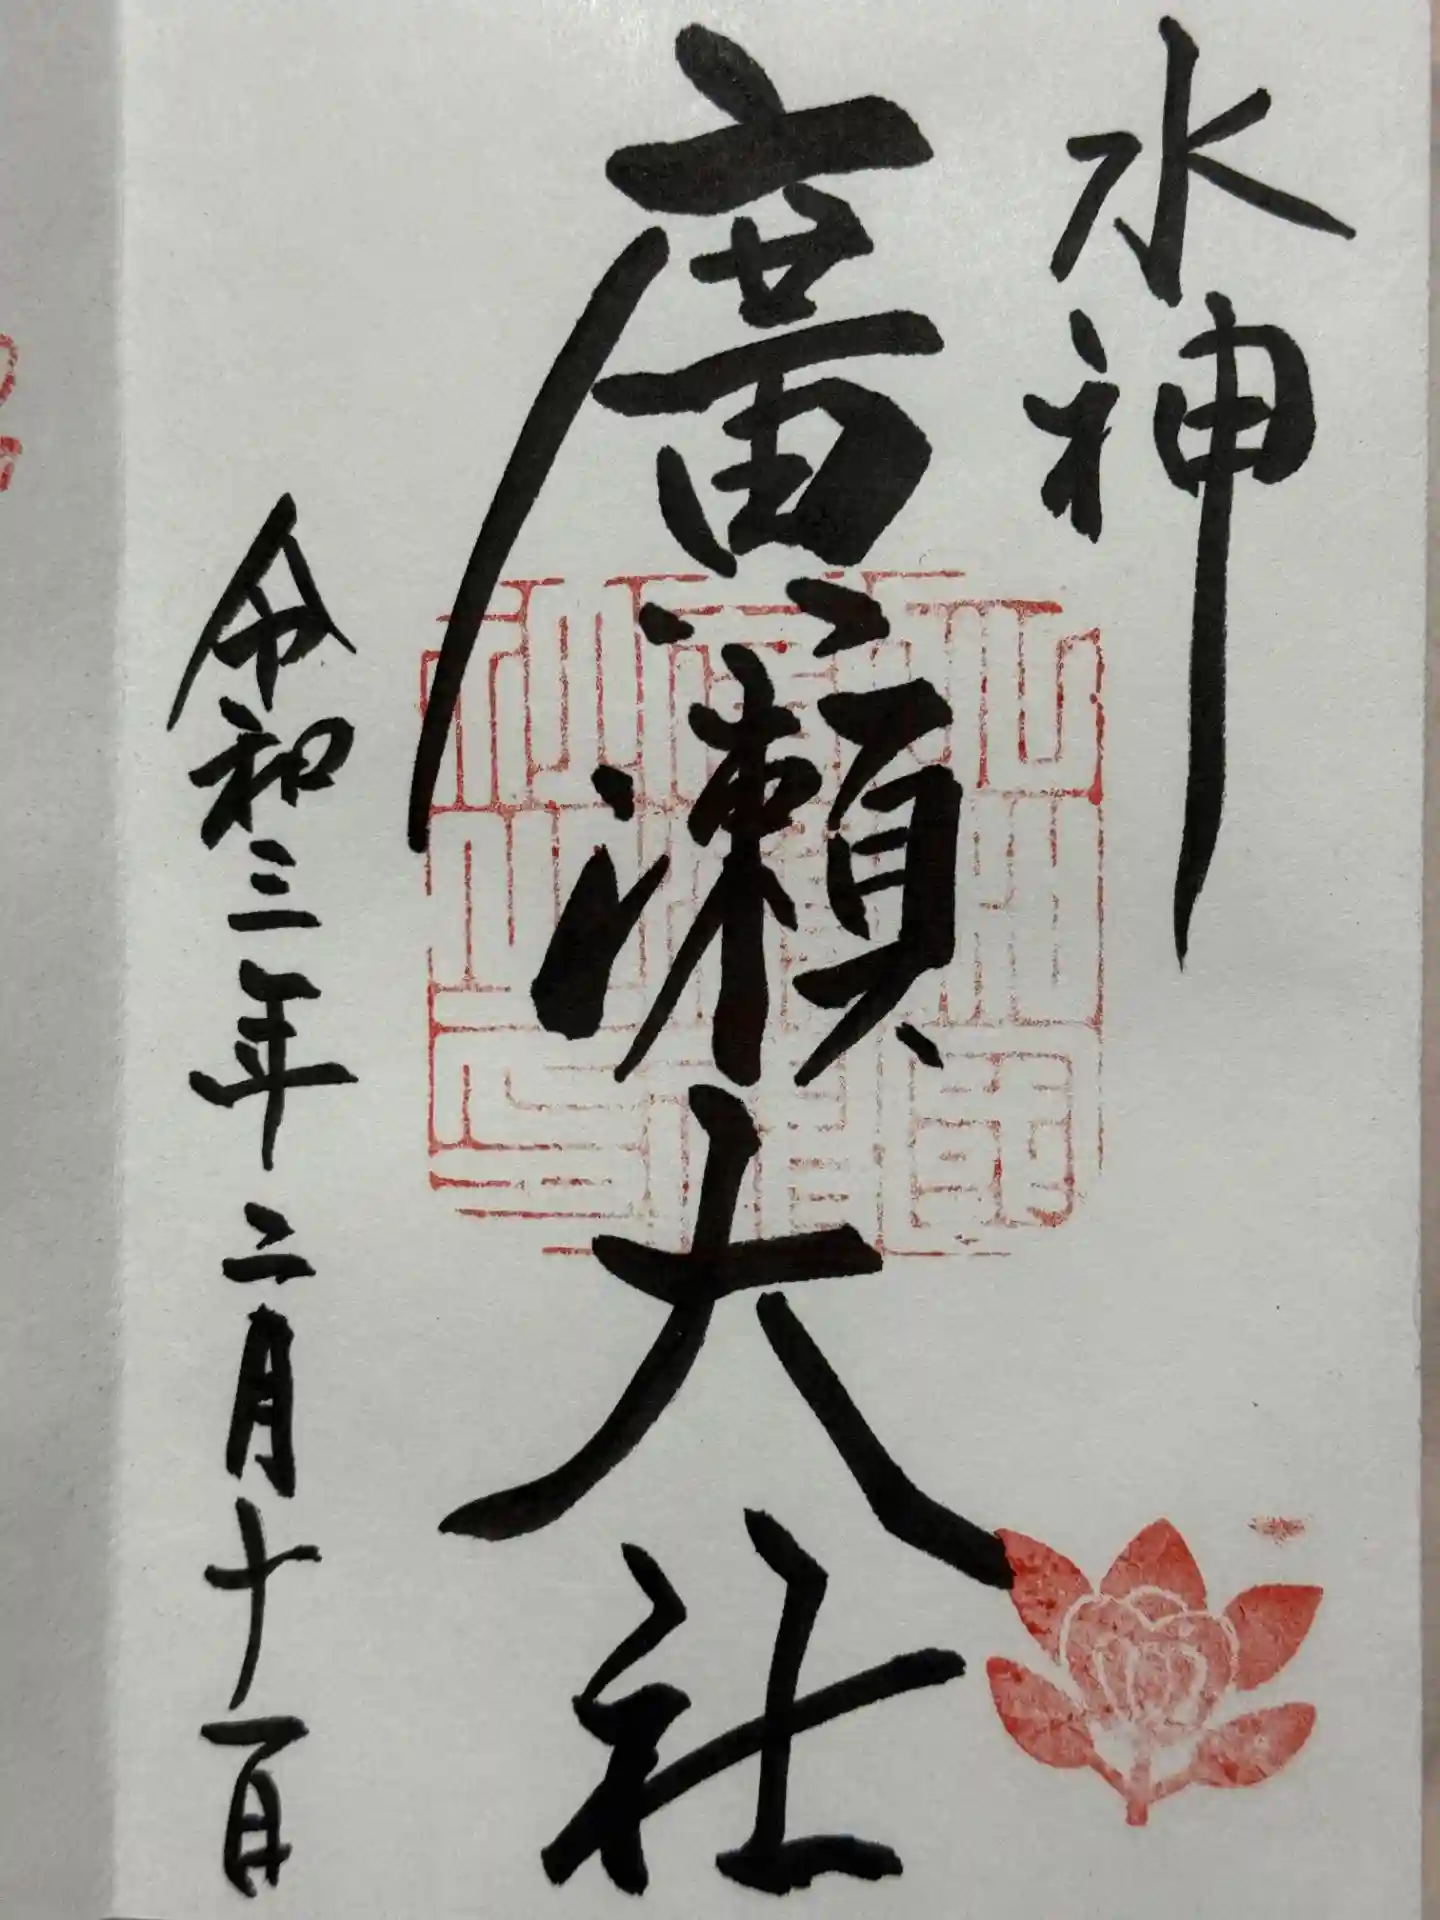 水神
廣瀬大社
令和三年二月十一日